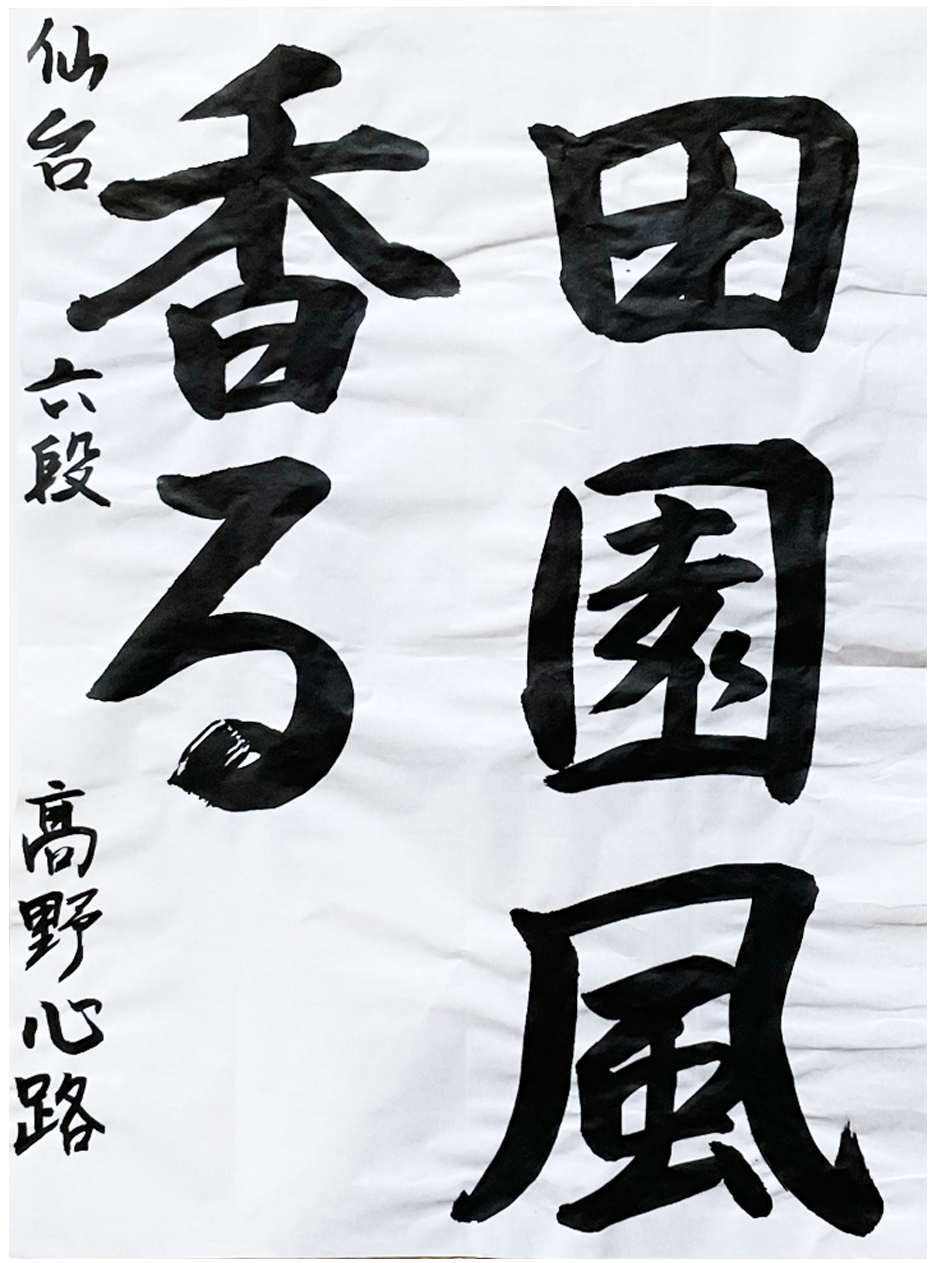 田園風
香る
仙台 六段 髙野心路